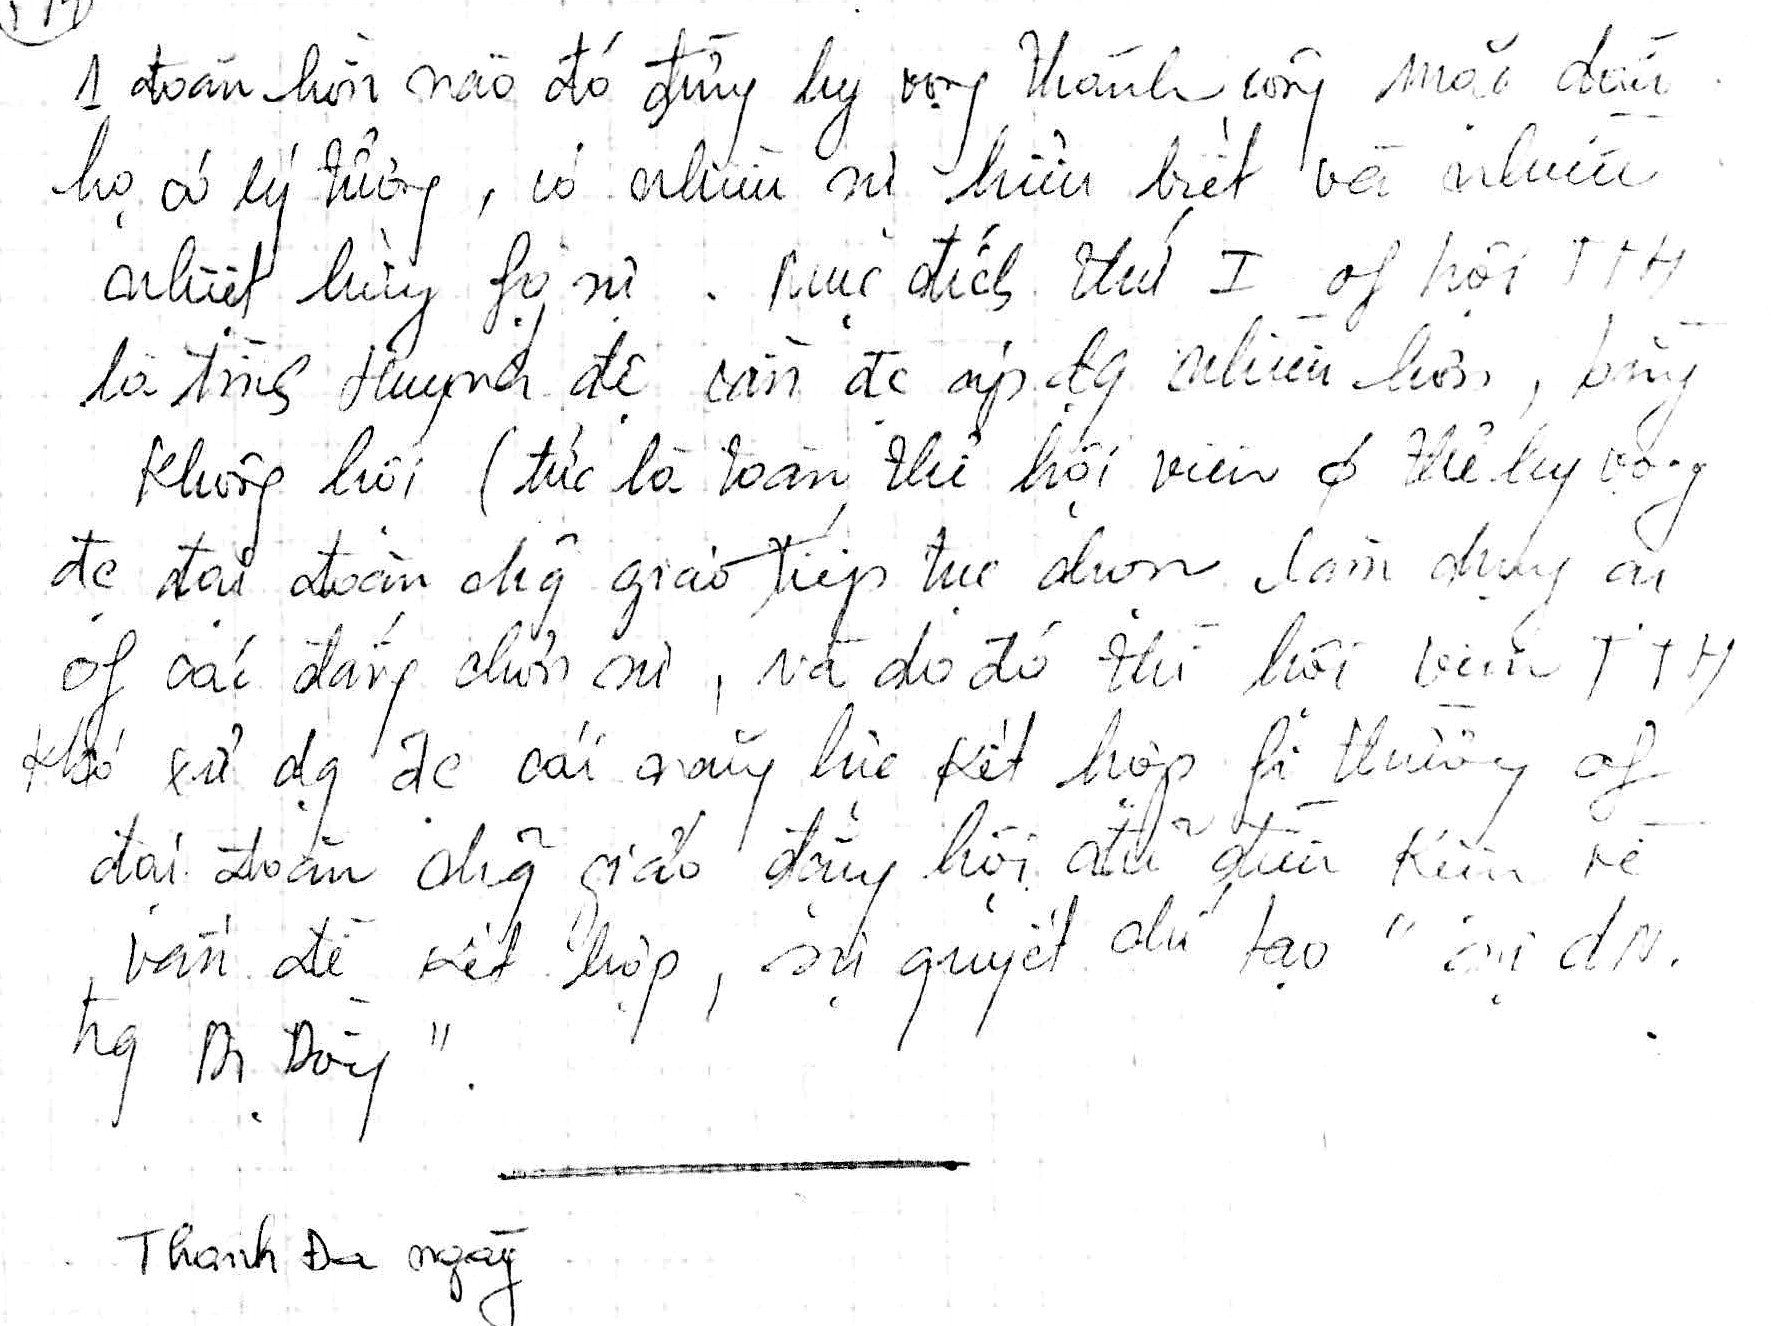 1 đoàn hồn nào đó đừng hy vọng thành công mặc dầu
họ có lý tưởng, có nhiều sự hiểu biết và nhiều
nhiệt hứng fg sự. Mục đích thứ I of hội TTH
là tình Huynh đệ cần đc áp dg nhiều hơn, bằng
không hội (tức là toàn thể hội viên ϕ thể hy vọng
đc đại đoàn chg giáo tiếp tục chọn làm dụng cụ
of các đấng chơn sư, và do đó thì hội viên TTH
khó xử dg đc cái năng lực kết hợp fi thường of
đại đoàn chg giáo đặng hội đủ điều kiện về
vấn đề kết hợp, sự quyết chí tạo "
tg Bị Đồng".
Thanh Đa ngày